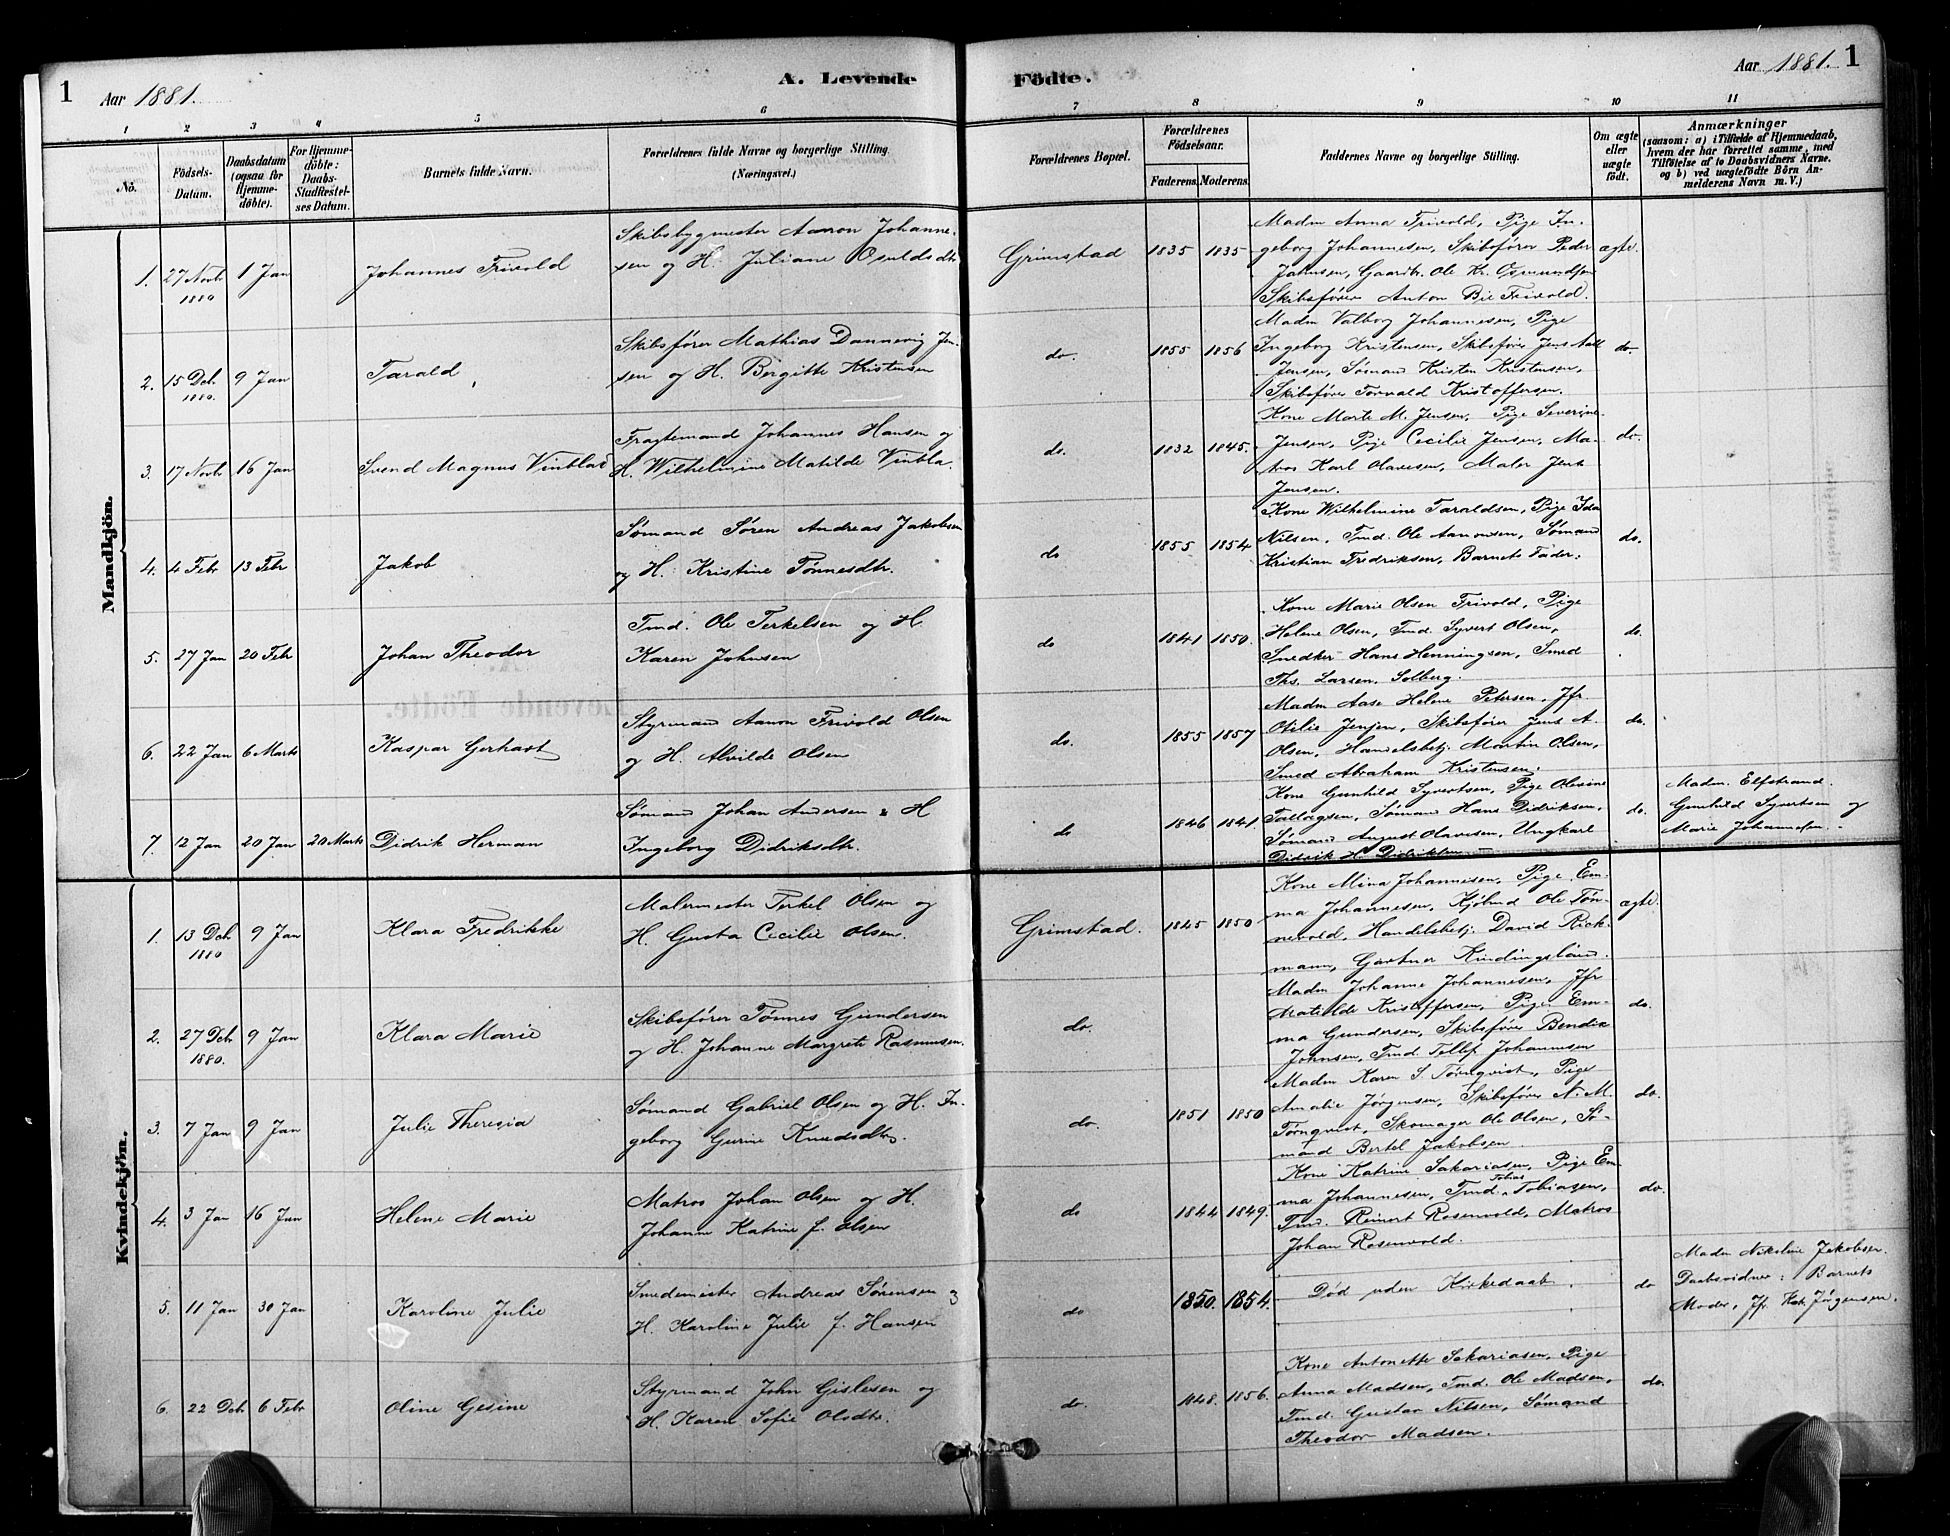 1
Aar 1881.
A. Levende Födte.
Aar 1881.
1
1 2 3 4 5 6 7 8 9 10 11
No.
Födsels-
Datum.
Daabsdatum
(ogsaa for
Hjemme-
døbte).
For Hjemme-
döbte:
Daabs-
Stadfæstel-
ses Datum.
Barnets fulde Navn.
Forældrenes fulde Navne og borgerlige Stilling.
(Næringsvei.)
Forældrenes Bopæl.
Forældrenes
Födselsaar.
Faderens. Moderens.
Faddernes Navne og borgerlige Stilling.
Om ægte
eller
uægte
födt.
Anmærkninger
(saasom: a) i Tilfælde af Hjemmedaab,
hvem der har forrettet samme, med
Tilföielse af to Daabsvidners Navne.
og b) ved uægtefödte Börn An-
melderens Navn m. V.)
Mandkjön.
1. 27 Novb 1880 1 Jan Johannes Frivold
Skibsbygmester Aaron Johanne-
sen og H. Juliane Osuldsdtr
Grimstad 1835 1835
Madm Anna Frivold, Pige In-
geborg Johannesen, Skibsfører Peder
Jahnsen, Gaardbr. Ole Kr. Osmundsen
Skibsfører Anton Bie Frivold.
ægte.
2. 15 Dcb. 1880. 9 Jan Tarald
Skibsfører Mathias Dannevig Jen-
sen og H. Bergitte Kristensen
do. 1855 1856
Madm Valborg Johannesen, Pige
Ingeborg Kristensen, Skibsfører Jens Aall
Jensen, Sømand Kristen Kristensen,
Skibsfører Torvald Kristoffersen.
do.
3. 17 Novb 16 Jan Svend Magnus Vinblad
Fragtemand Johannes Hansen og
H. Wilhelmine Matilde Vinbla.
do. 1832 1845.
Kone Marte M. Jensen, Pige Severine
Jensen, Pige Cecilie Jensen, Ma-
tros Karl Olavesen, Maler Jens
Jensen.
do.
4. 4 Febr 13 Febr Jakob
Sømand Søren Andreas Jakobsen
og H. Kristine Tønnesdtr.
do 1855 1854
Kone Wilhelmine Taraldsen, Pige Ida
Nilsen, Tmd. Ole Aanonsen, Sømand
Kristian Fredriksen, Barnets Fader.
do.
5. 27 Jan 20 Febr Johan Theodor
Tmd. Ole Terkelsen og H
Karen Johnsen
do 1841 1850.
Kone Marie Olsen Frivold, Pige
Helene Olsen, Tmd. Syvert Olsen,
Snedker Hans Henningsen, Smed
Ths. Larsen, Solberg.
do.
6. 22 Jan 6 Marts Kaspar Gerhart
Styrmand Aanon Frivold Olsen
og H. Alvilde Olsen
do. 1855 1857
Madm Aase Helene Petersen, Jfr.
Otilie Jensen, Skibsfører Jens A.
Olsen, Handelsbetj. Martin Olsen,
Smed Abraham Kristensen.
do.
7. 12 Jan 20 Jan 20 Marts Didrik Herman
Sømand Johan Andersen & H
Ingeborg Didriksdtr.
do 1846 1841.
Kone Gunhild Syvertsen, Pige Olevine
Tallagsen, Sømand Hans Didriksen,
Sømand August Olavesen, Ungkarl
Didrik H. Didriksen
do.
Madm. Elfstrand.
Gunhild Syvertsen og
Marie Johannesen.
Kvindekjön.
1. 13 Dcb 1880 9 Jan Klara Fredrikke
Malermester Terkel Olsen og
H. Gusta Cecilie Olsen.
Grimstad. 1845 1850
Kone Mina Johannesen, Pige Em-
ma Johannesen, Kjøbmd Ole Tøn-
nevold, Handelsbetj. David Rick-
mann, Gartner
ægte.
2. 27 Dcb 1880. 9 Jan Klara Marie
Skibsfører Tønnes Gundersen
og H. Johanne Margrete Rasmussen.
do.
Madm Johanne Johannesen, Jfr
Matilde Kristoffersen, Pige Em-
ma Gundersen, Skibsfører Bendix
Johnsen, Tmd. Tellef Johannesen
do.
3. 7 Jan 9 Jan Julie Theresia
Sømand Gabriel Olsen og H. In-
geborg Gurine Knudsdtr.
do. 1851 1850
Madm Karen S. Tørnqvist, Pige
Amalie Jørgensen, Skibsfører N. M.
Tørnqvist, Skomager Ole Olsen, Sø-
mand Bertel Jakobsen.
do.
4. 3 Jan 16 Jan Helene Marie
Matros Johan Olsen og H.
Johanne Katrine f. Olsen
do 1844 1849.
Kone Katrine Sakariasen, Pige Em-
ma Johannesen, Tmd. Tobias Tobiasen,
Tmd. Reinert Rosenvold, Matros
Johan Rosenvold.
do.
5. 11 Jan 30 Jan Karoline Julie
Smedemester Andreas Sørensen og
H. Karoline Julie f. Hansen
do 1850. 1854.
Død uden Kirkedaab.
do
Madm Nikoline Jakobsen.
Daabsvidner: Barnets
Moder, Jfr. Kat. Jørgensen.
6. 22 Dcb 6 Febr Oline Gesine
Styrmand John Gislesen og
H. Karen Sofie Olsdtr.
do. 1848. 1856.
Kone Antonette Sakariasen, Pige
Anna Madsen, Tmd. Ole Madsen,
Tmd. Gustav Nilsen, Sømand
Theodor Madsen.
do.